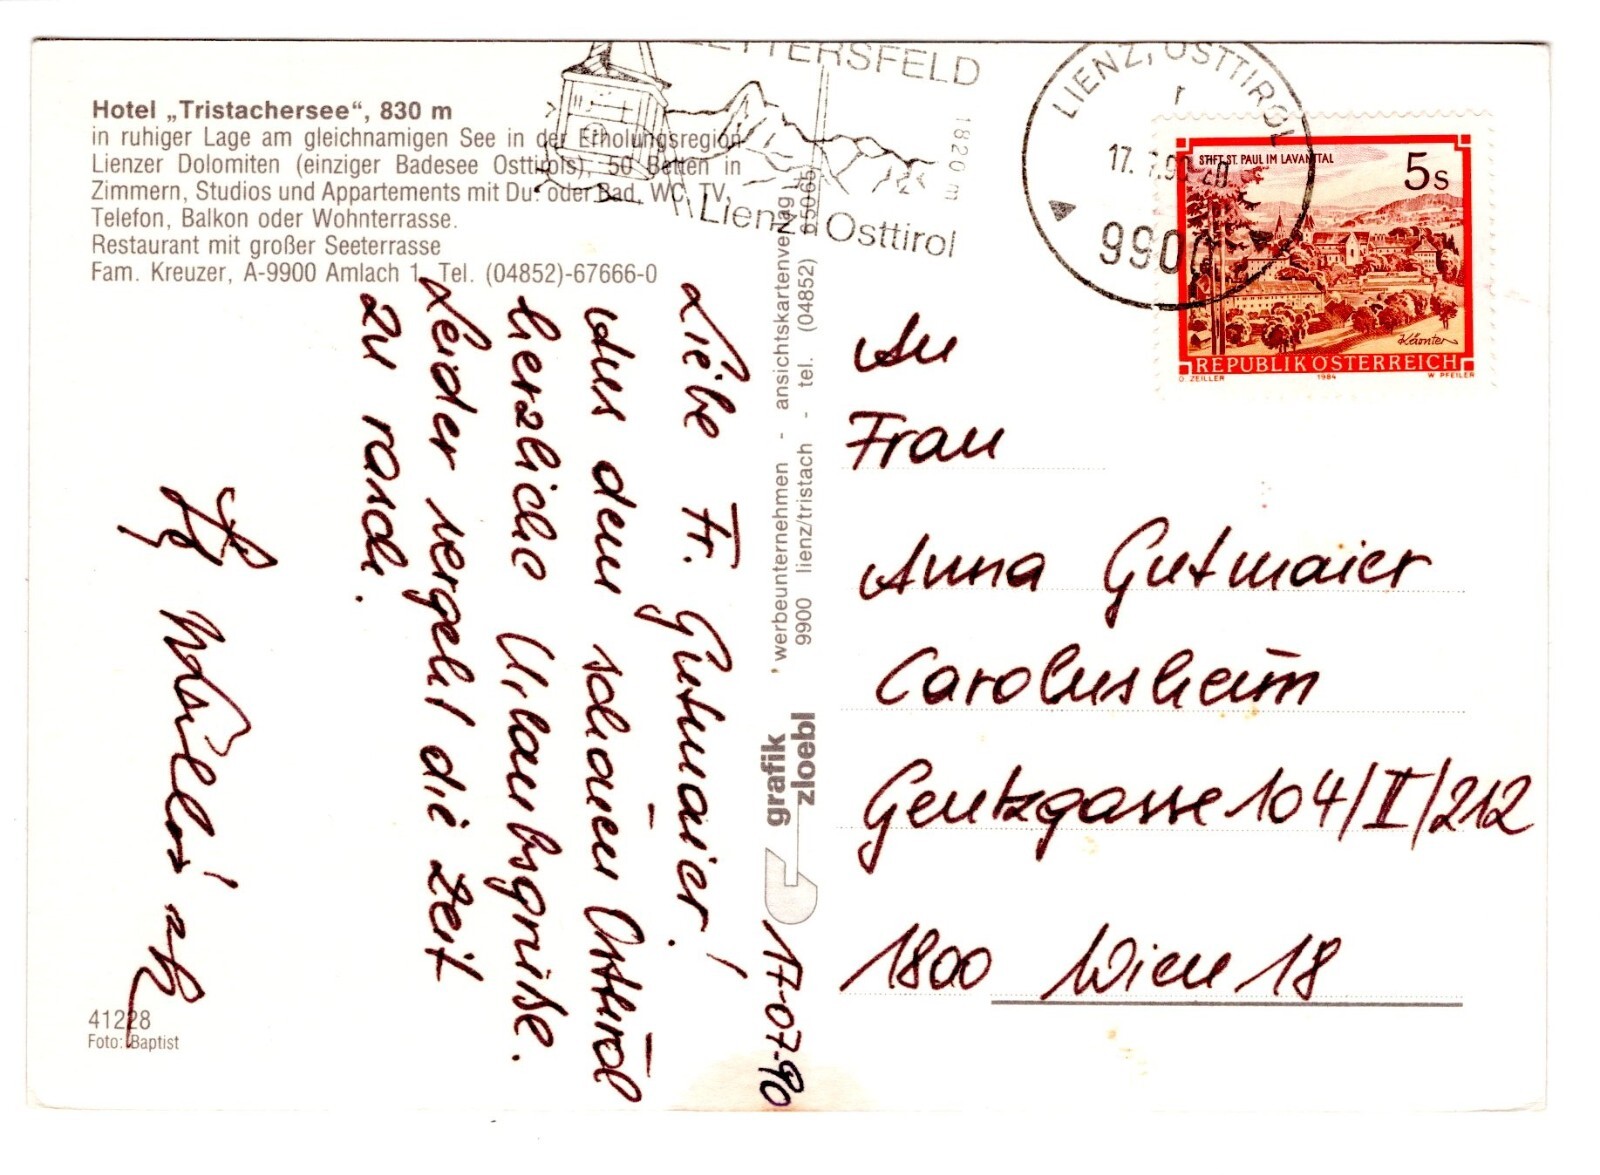 Hotel „Tristachersee“, 830 m
in ruhiger Lage am gleichnamigen See in der Erholungsregion
Lienzer Dolomiten (einziger Badesee Osttirols), 50 Betten in
Zimmern, Studios und Appartements mit Du. oder Bad, WC, TV,
Telefon, Balkon oder Wohnterrasse.
Restaurant mit großer Seeterrasse
Fam. Kreuzer, A-9900 Amlach 1, Tel. (04852)-67666-0
1820 m
Lienz Osttirol
LIENZ, OSTTIROL
r
9900
STIFT ST. PAUL IM LAVANTTAL
5s
Kärnten
REPUBLIK ÖSTERREICH
O. ZEILLER 1984 W. PFEILER
17-07-90
Liebe Fr. Gutmaier!
Aus dem schönen Osttirol
herzliche Urlaubsgrüße.
Leider vergeht die Zeit
zu rasch.
werbeunternehmen - ansichtskartenverlag
9900 lienz/tristach - tel. (04852)
grafik
zloebl
An
Frau
Anna Gutmaier
Carolusheim
Gentzgasse 104/II/212
1800 Wien 18
41228
Foto: Baptist